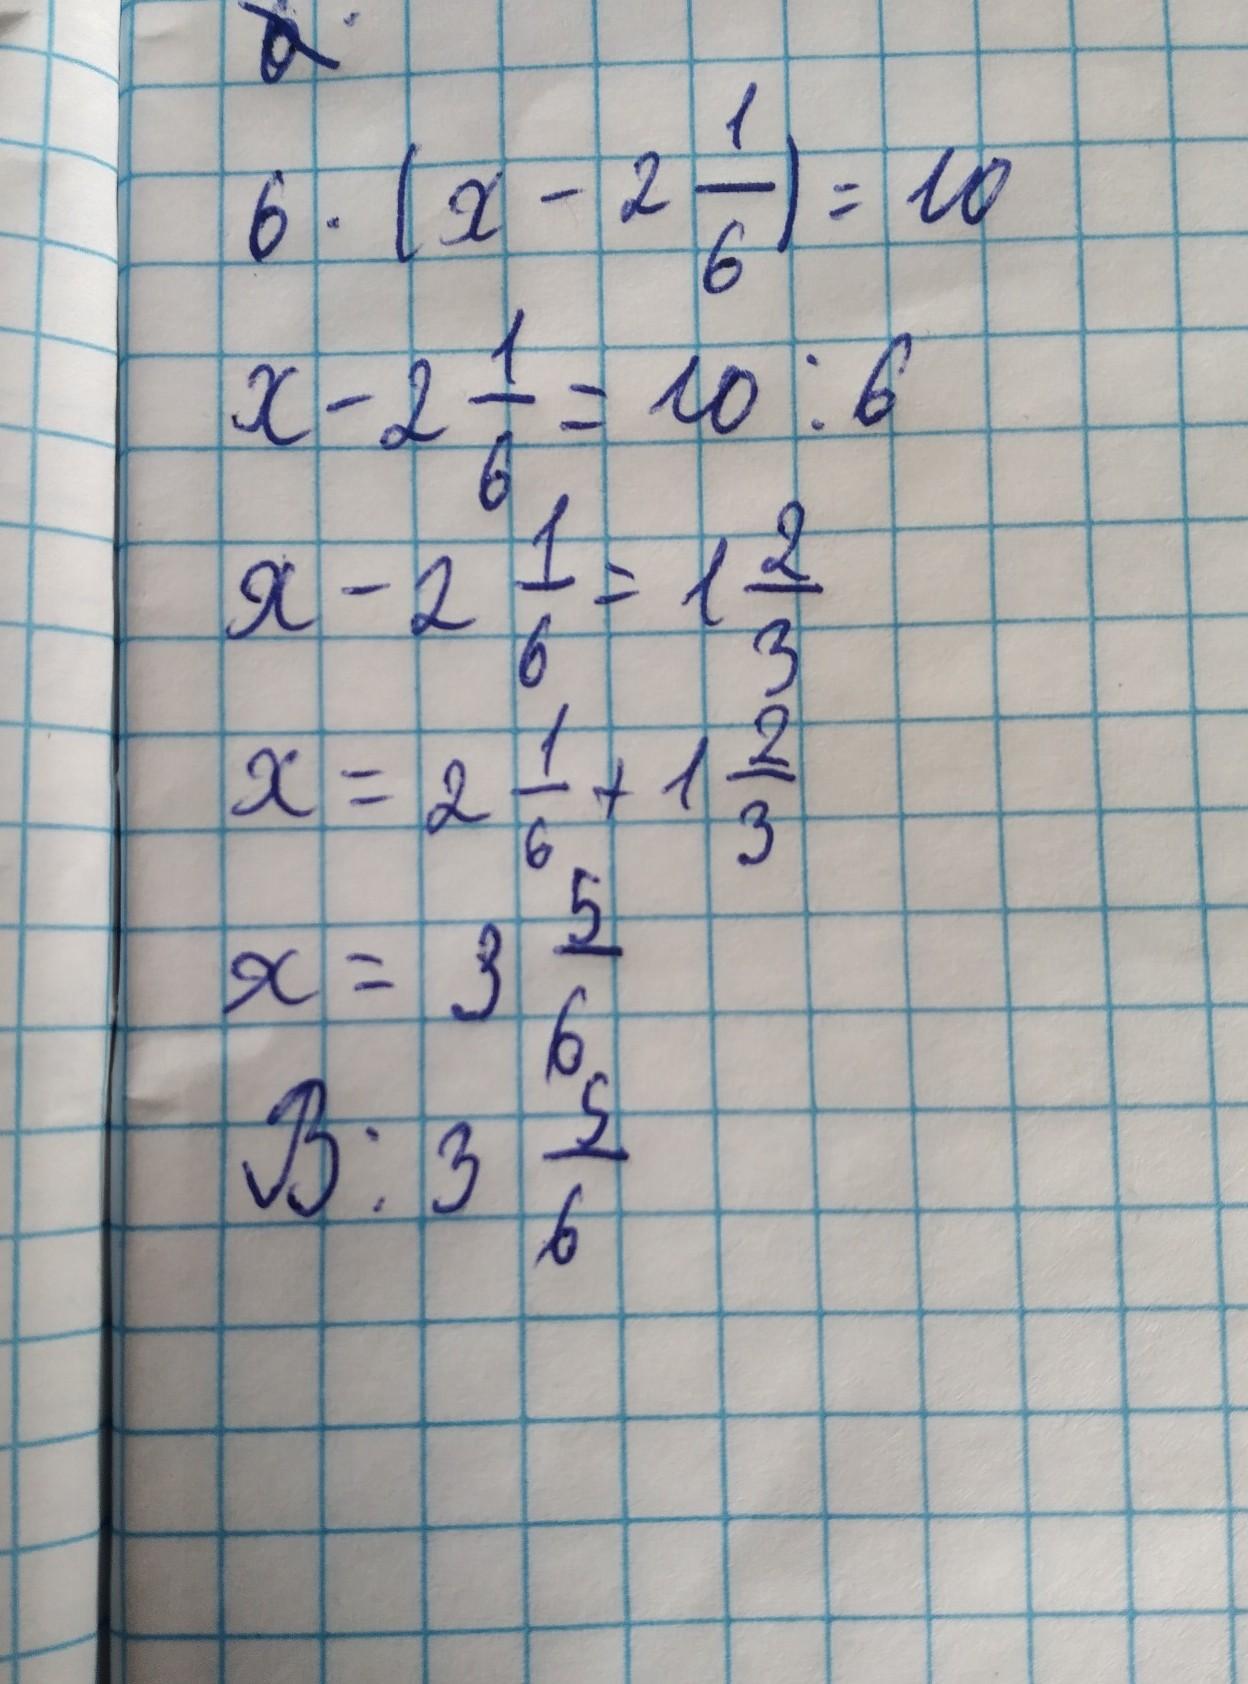 6 · (x - 2 1/6) = 10
x - 2 1/6 = 10 : 6
x - 2 1/6 = 1 2/3
x = 2 1/6 + 1 2/3
x = 3 5/6
В: 3 5/6